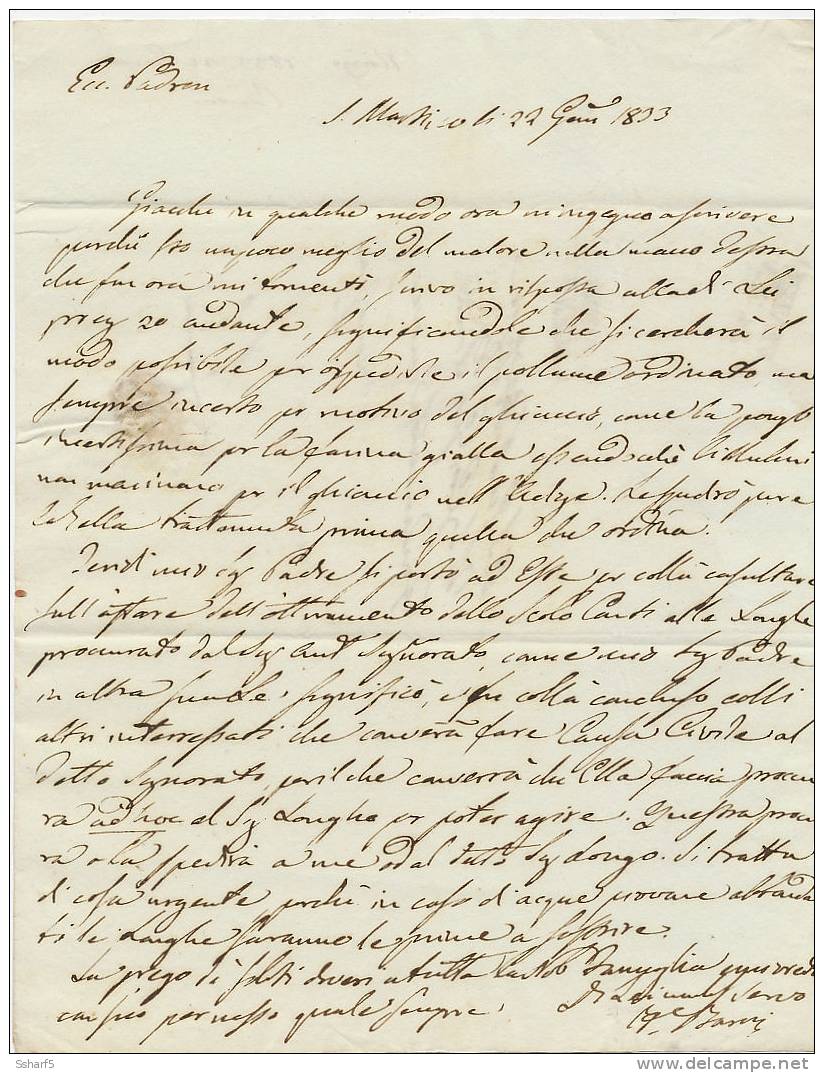 Ecc. Padron
S. Martino li 22 Genn 1833
Giacchè in qualche modo ora m'ingegno a scrivere
perchè sto un poco meglio del malore nella mano destra
che fin ora mi tormentò, scrivo in risposta alla di Lei
preg 20 andante, significandole che si cercherà il
modo possibile per ispedirle il pollame ordinato, ma
sempre incerto per motivo del ghiaccio, come la
incertissima per la farina gialla essendochè li Mulini
non macinano per il ghiaccio nell'Adige. pure
della trattenuta prima quella che ordina.
mio Sig Padre si portò ad Este per colà consultare
sull'affare dell'otturamento dello Scolo alle Longhe
procurato dal Sig Ant Signorato, come mio Sig Padre
in altra sua Le significò, e fu colà concluso colli
altri interressati che converrà fare Causa Civile al
detto Signorato, perilchè converrà che Ella faccia procu
ra ad hoc al Sig Longho per poter agire. Questa procu
ra o la spedirà a me od al detto Sig Longo. Si tratta
di cosa urgente perchè in caso di acque piovane abbonda
ti le Longhe saranno le prime a soffrire.
La prego i soliti doveri a tutta la Nob Famiglia e mi creda
con pieno possesso quale sempre.
Servo